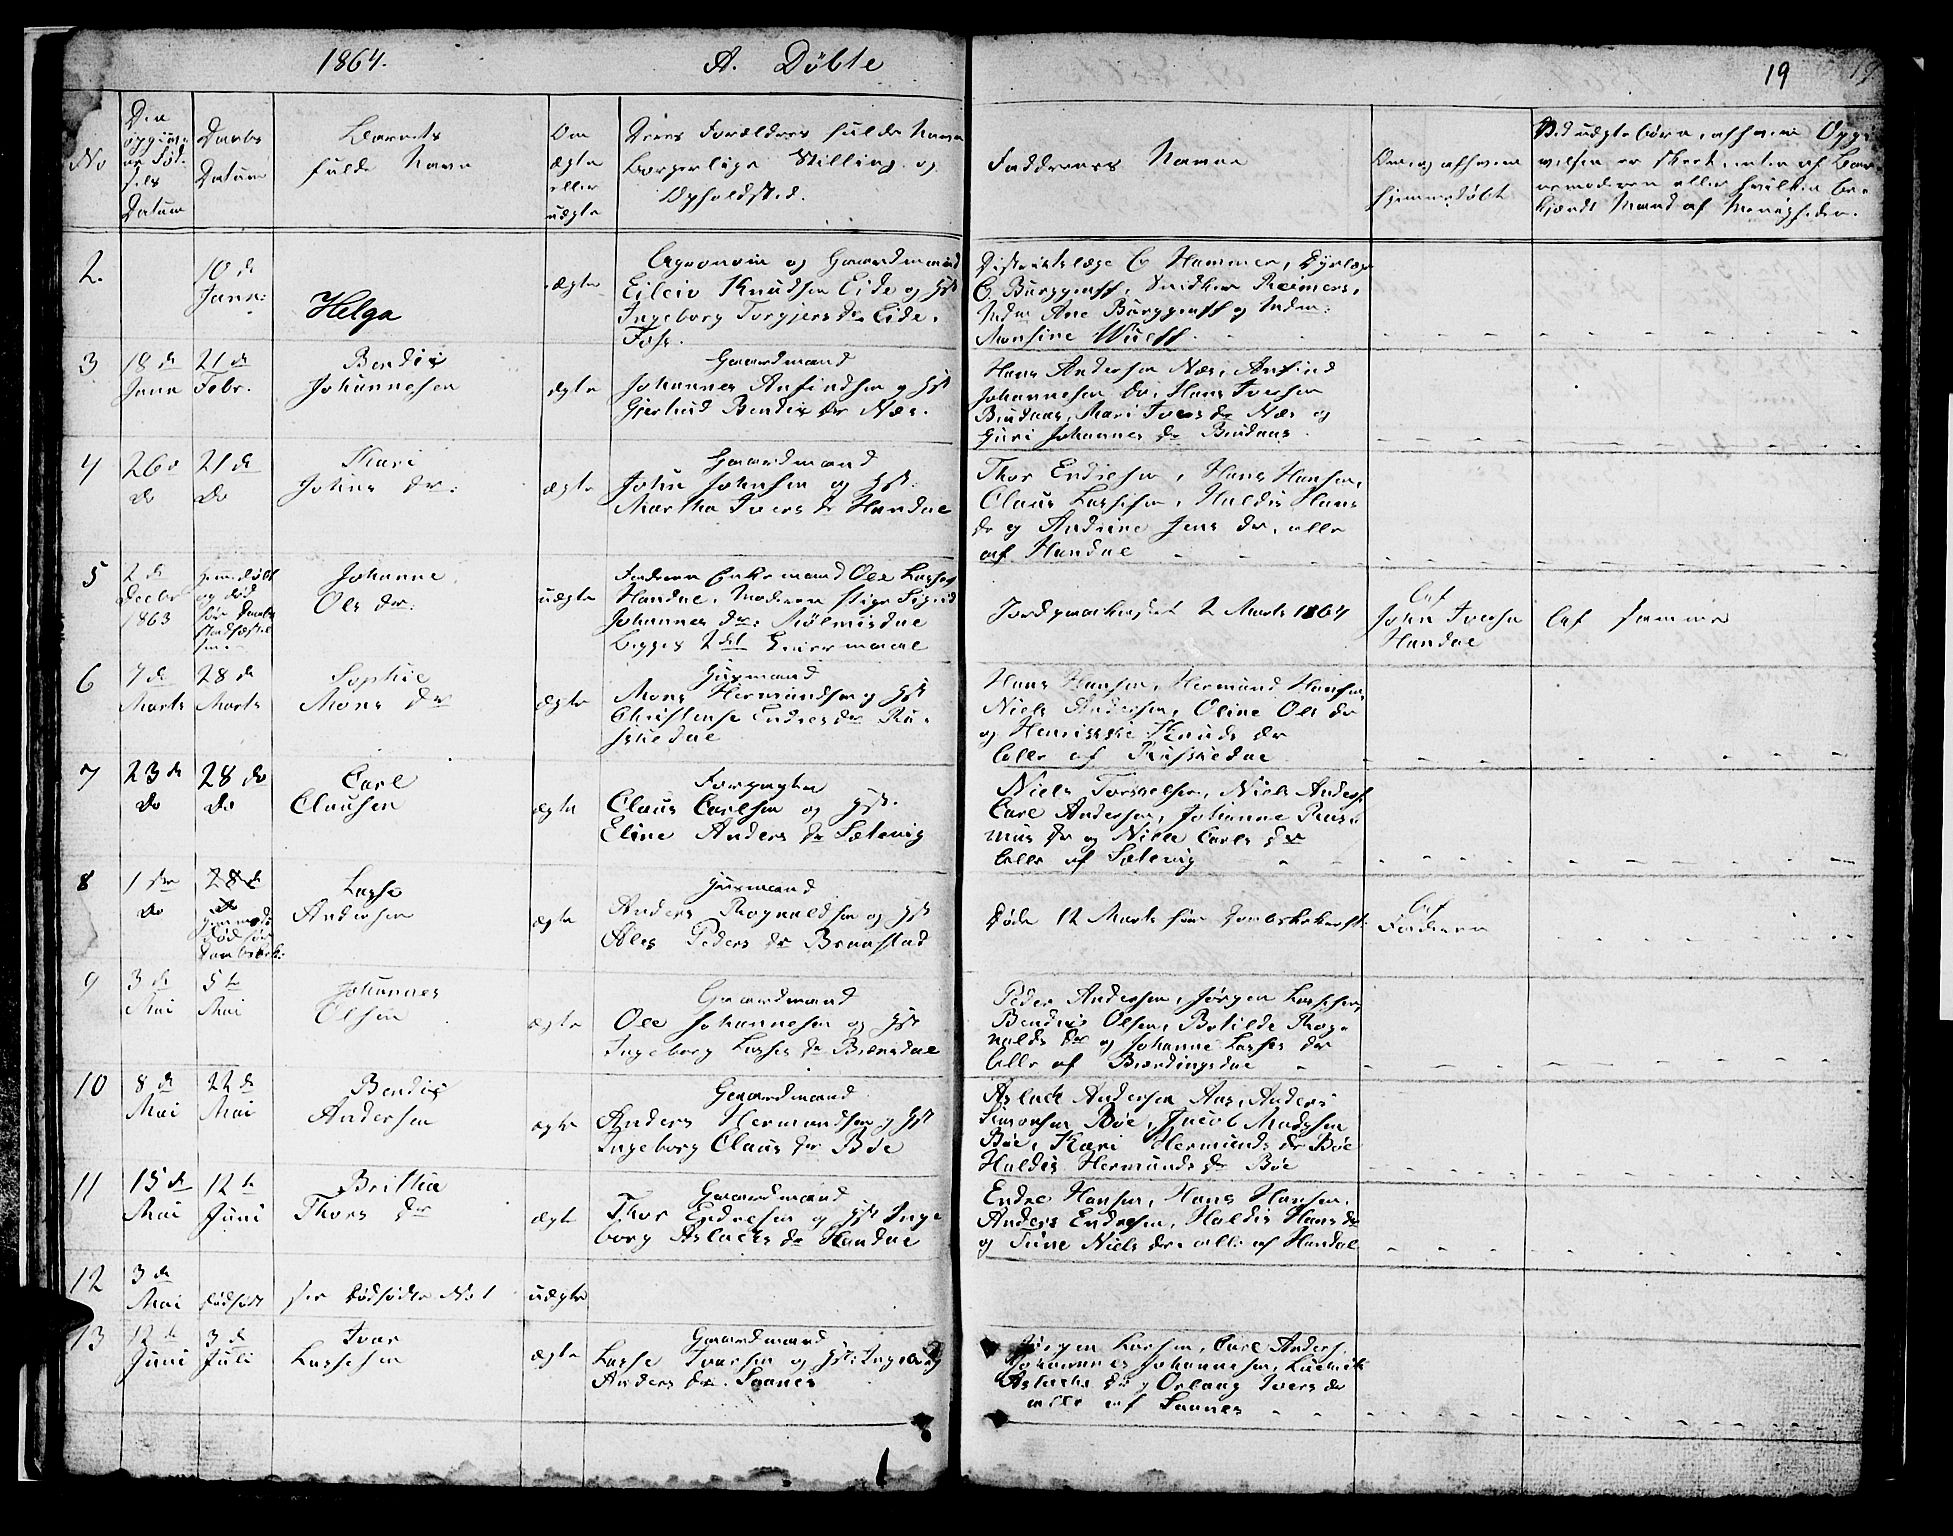 1864.
A. Döbte
19
No
Den
opgivne
Fød-
sels
Datum
Daabs
Datum
Barnets
fulde Navn
Om
ægte
eller
uægte
Deres Forældres fulde Navne
Borgerlige Stilling og
Opholdsted.
Faddernes Navne
Om og af hvem
hjemmedöbt
Ved uægte börn, af hvem Opgi
velsen er skeet, enten af Bar-
nemoderen eller hvilken be-
kjendt Mand af Menigheden.
2.
10 de
Janu:
Helga
ægte
Agronom og Gaardmand
Eileiv Knudsen Eide og Hst
Ingeborg Torgjers Dr Eide.
Distriktslæge C Hammer, Dyrlæge
C. Burggraff, Reimers,
Ane Burggraff og
Monsine Wulff.
3
18 de
Janu
21 de
Febr.
Bendix
Johannesen
ægte
Gaardmand
Johannes Anfindsen og Hst
Gjertrud Bendix Dr Næs.
Hans Andersen Næs, Anfind
Johannesen Do, Hans Iversen
Mari Ivers Dr Næs og
Guri Johannes Dr
4
26
Do
21 de
Do
Mari
Johns Dr:
ægte
Gaardmand
John Johnsen og Hst.
Martha Ivers Dr Handae
Thor Endresen, Hans Hansen,
Claus Lassesen, Haldis Hans
Dr og Andrine Jens Dr, alle
af Handae
5
2 de
Decbr
1863
Hjemedöbt
og död
før Daabs
Stadfæstel
sen
Johanne
Ols Dr:
uægte
Faderen Enkemand Ole Lasses
Handae, Moderen Pige Sigrid
Johannes Dr:
Begges 2det Leiermaal
Jordpaakastet 2 Marts 1864
Af
John Iversen
Handae
Af samme
6
7 de
Marts
28 de
Marts
Sophie
Mons Dr
ægte
Huusmand
Mons Hermundsen og Hst
Christense Endres Dr Ru-
skedae
Hans Hansen, Hermund Hansen,
Niels Andersen, Oline Ols Dr
og Henrikke Knuds Dr
Alle af Russkedae
7
23 de
Do
28 de
Do
Carl
Clausen
ægte
Forpagter
Claus Carlsen og Hst.
Eline Anders Dr Sætevig
Niels Torkelsen, Niels Anders.
Carl Andersen, Johanne Rass
mus Dr og Nille Carls Dr
Alle af Sætevig
8
1 ste
Do
28 de
Do
Lasse
Andersen
ægte
Huusmand
Anders Rognaldsen og Hst
Ales Peders Dr Brunstad
Døde 12 Marts før
Af
Faderen
9
3 de
Mai
5 te
Mai
Johannes
Olsen
ægte
Gaardmand
Ole Johannesen og Hst
Ingeborg Lasses Dr
Peder Andersen, Jörgen Lassesen,
Bendix Olsen, Botilde Rog-
nalds Dr og Johanne Lasses Dr
Alle af
10
8 de
Mai
22 de
Mai
Bendix
Andersen
ægte
Gaardmand
Anders Hermundsen og Hst
Ingeborg Claus Dr Böe
Aslack Andersen Aas, Anders
Simonsen Böe, Jacob Madssen
Böe, Kari Hermunds Dr Böe
Haldis Hermunds Dr Böe
11
15 de
Mai
12 te
Juni
Britha
Thors Dr
ægte
Gaardmand
Thor Endresen og Hst Inge
borg Aslacks Dr Handae
Endre Hansen, Hans Hansen,
Anders Endresen, Haldis Hans Dr
og Trine Niels Dr, alle af Handae
12
3 de
Mai
dödfödt
see Dödfödte No 1
uægte
13
12 te
Juni
3 de
Juli
Ivar
Lassesen
ægte
Gaardmand
Lasse Ivarsen og Hst: Ingeborg
Anders Dr. Sannes
Jörgen Larsen, Carl Anders.
Johannes Johannesen,
Aslacks Dr og Orlaug Ivers Dr
alle af Sannes